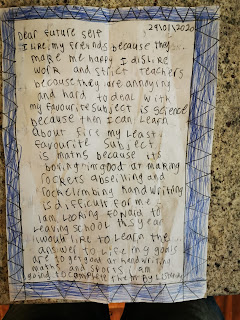 29/01/2020
Dear future self
I like my friends because they
make me happy I dislike
work and strict teachers
because they are annoying
and hard to deal with
my favourite subject is science
because then I can learn
about fire my least
favourite subject
is maths because its
boring im good at making
rockets abseiling and
rockclimbing handwriting
is difficult for me
am looking forward to
leaving school this year
I would like to learn the
answer to life my goals
are to get good at handwriting
maths and sports I am
going to complete them by